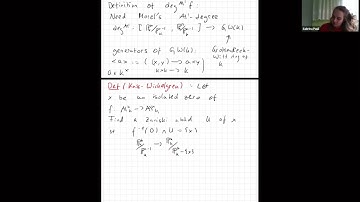 Definition of deg^{A^1} f:
Need Morel's A^1-degree
deg^{A^1}: [P^n_k/P^{n-1}_k, P^n_k/P^{n-1}_k] → GW(k)
generators of GW(k):
<a> := ( (x,y) → axy )
a ∈ k^x k×k → k
Grothendieck-
Witt ring
of k
Def (Kass-Wickelgren): Let
x be an isolated zero of
f: A^n_k → A^n_k
Find a Zariski nbhd U of x
st f^{-1}(0) ∩ U = {x}
P^n_k/P^{n-1}_k → P^n_k/P^n_k-{x}